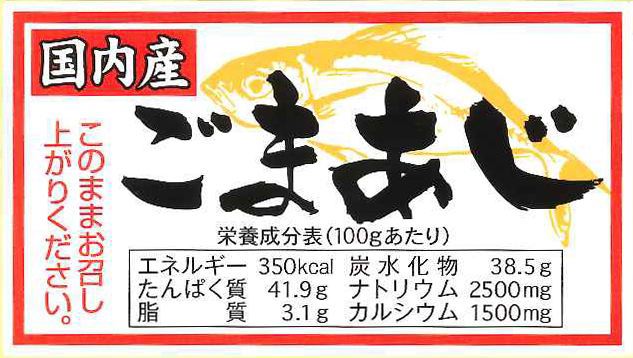 国内産
ごまあじ
このままお召し
上がりください。
栄養成分表(100gあたり)
エネルギー 350kcal 炭水化物 38.5g
たんぱく質 41.9g ナトリウム 2500mg
脂質 3.1g カルシウム 1500mg